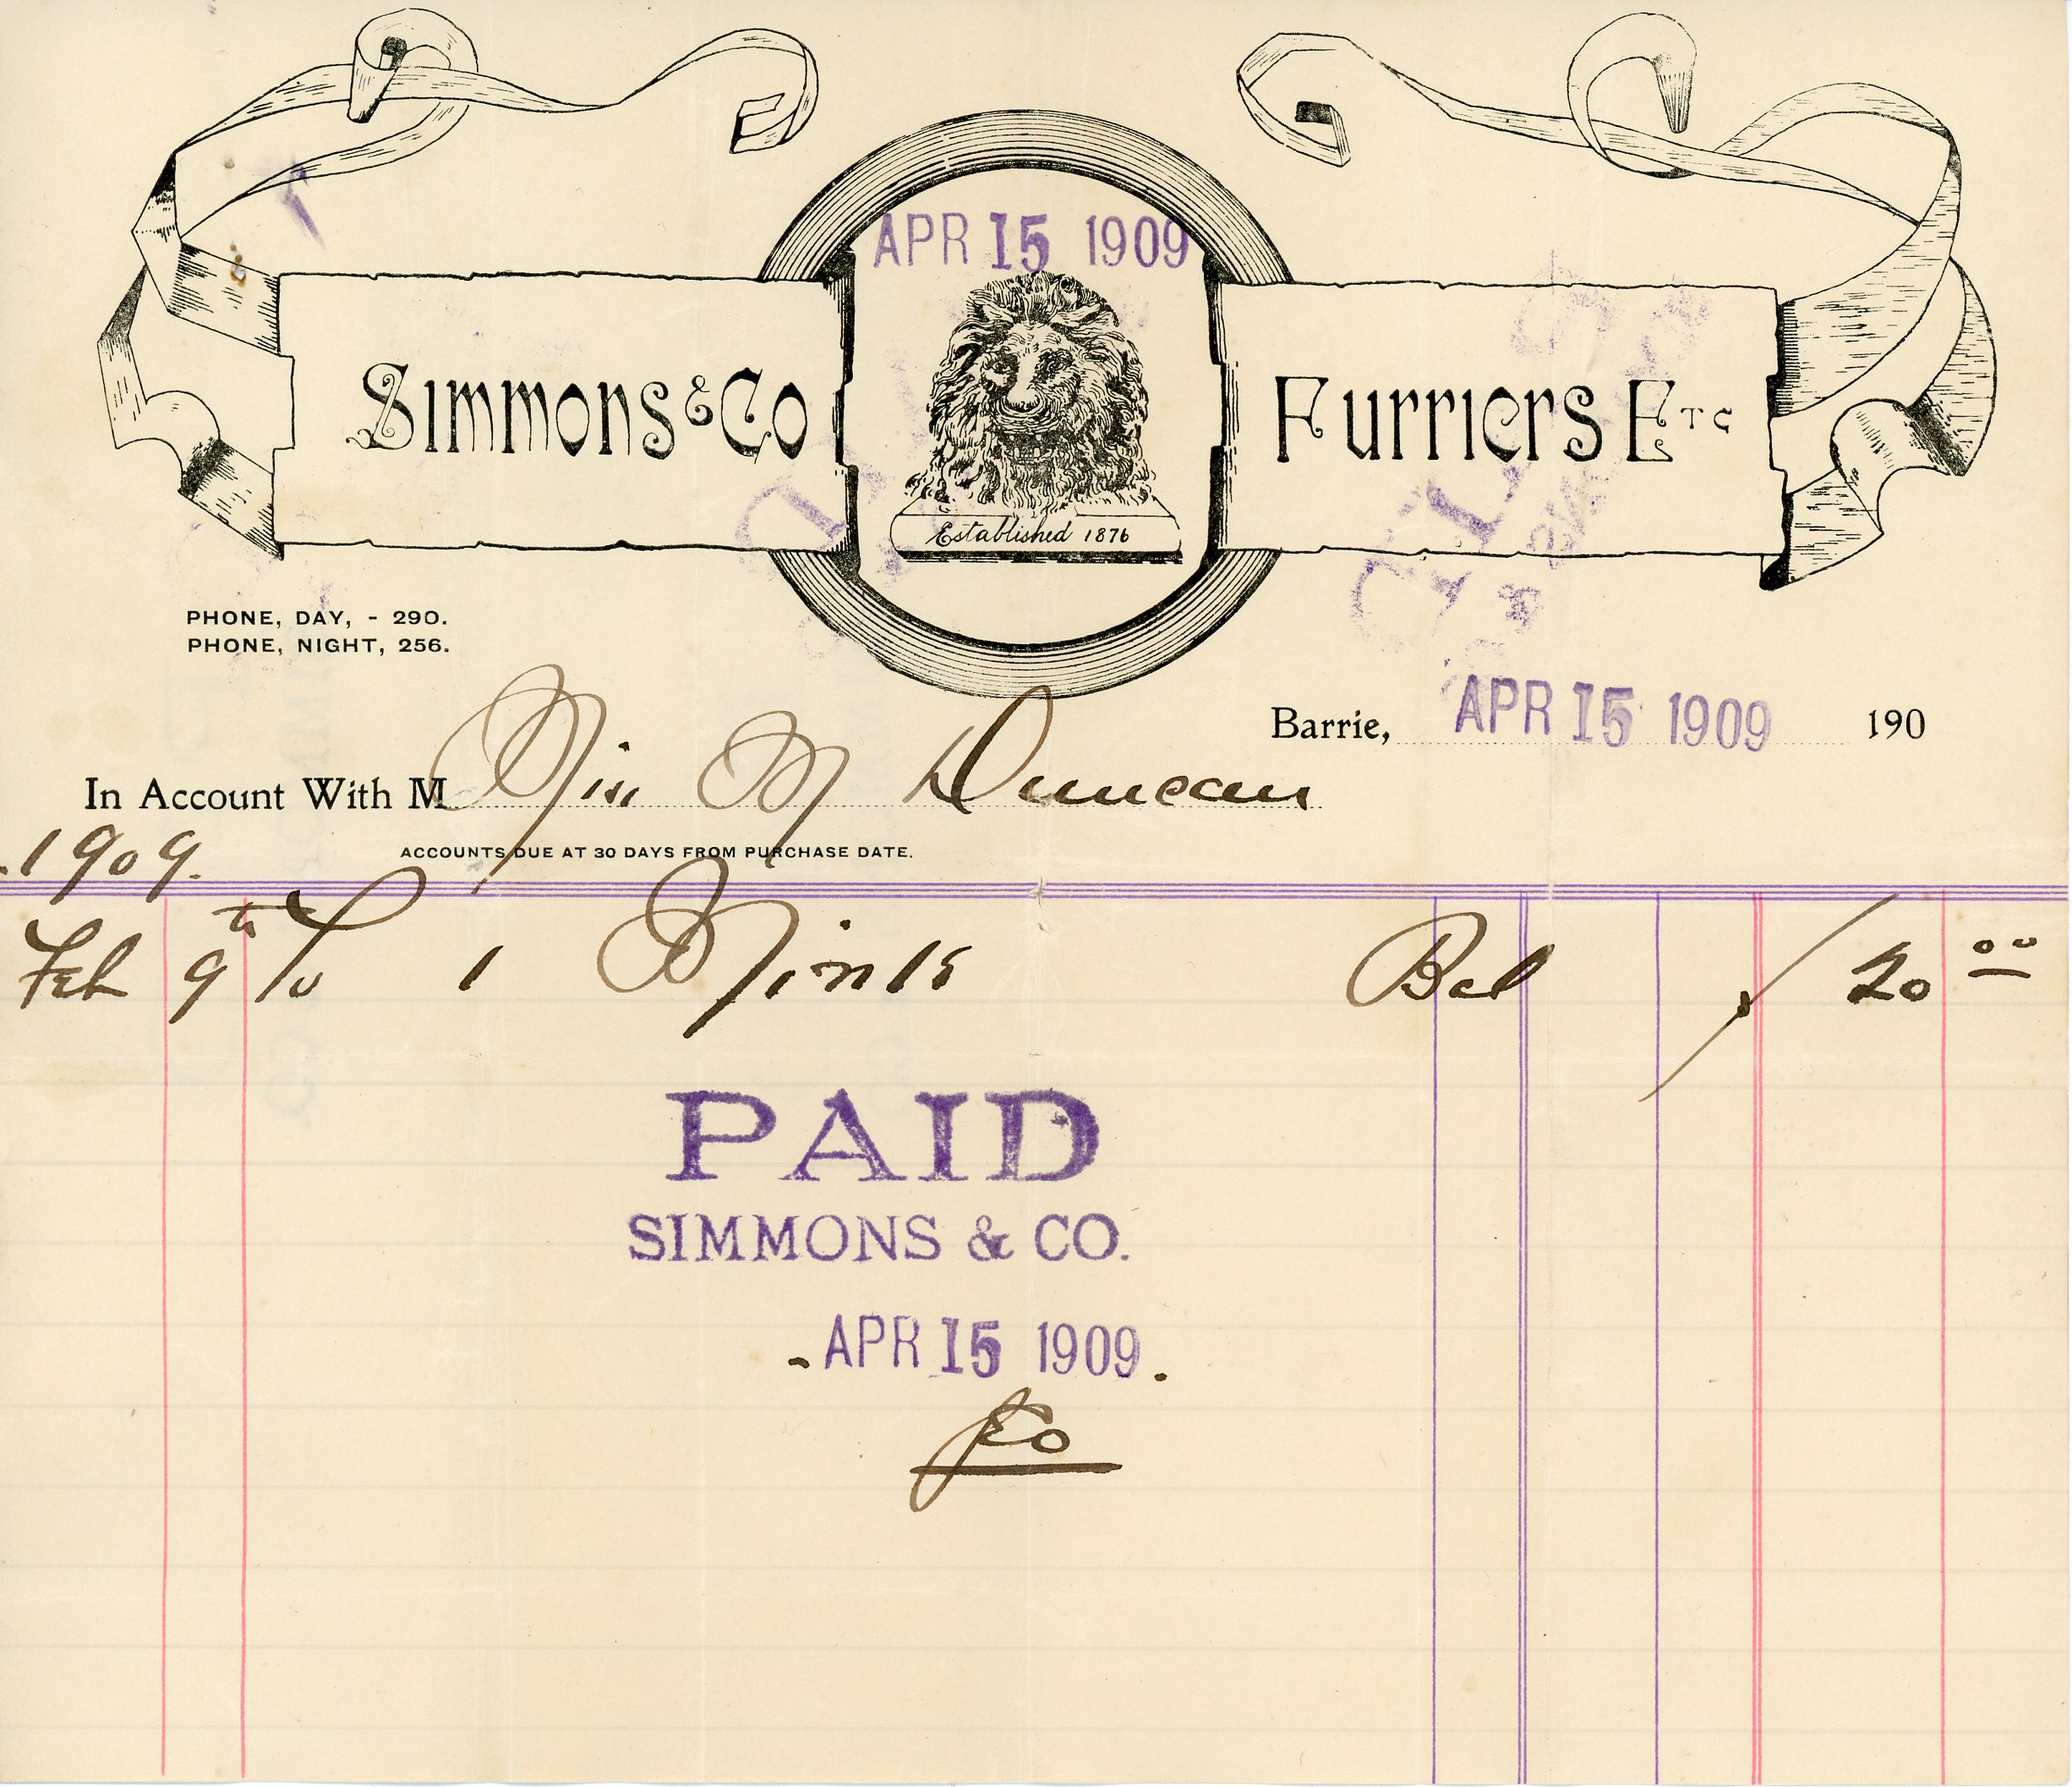 APR 15 1909
Simmons & Co Furriers Etc
Established 1876
PHONE, DAY, - 290.
PHONE, NIGHT, 256.
Barrie, APR 15 1909 190
In Account With M Miss M Duncan
1909. ACCOUNTS DUE AT 30 DAYS FROM PURCHASE DATE.
Feb 9th To 1 Mink Bal 20 00
PAID
SIMMONS & CO.
APR 15 1909